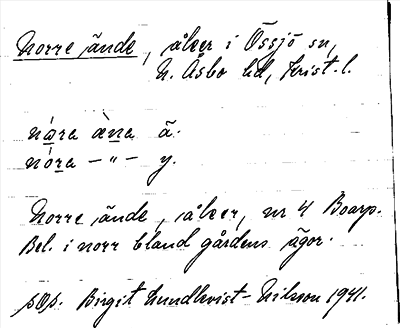 Norre ände, åker i Össjö sn,
N. Åsbo hd, Krist. l.
nára ä̀na ä.
nóra — " — y.
Norre ände, åker, nr 4 Boarp.
Bel. i norr bland gårdens ägor.
Birgit Lundkvist-Nilsson 1941.